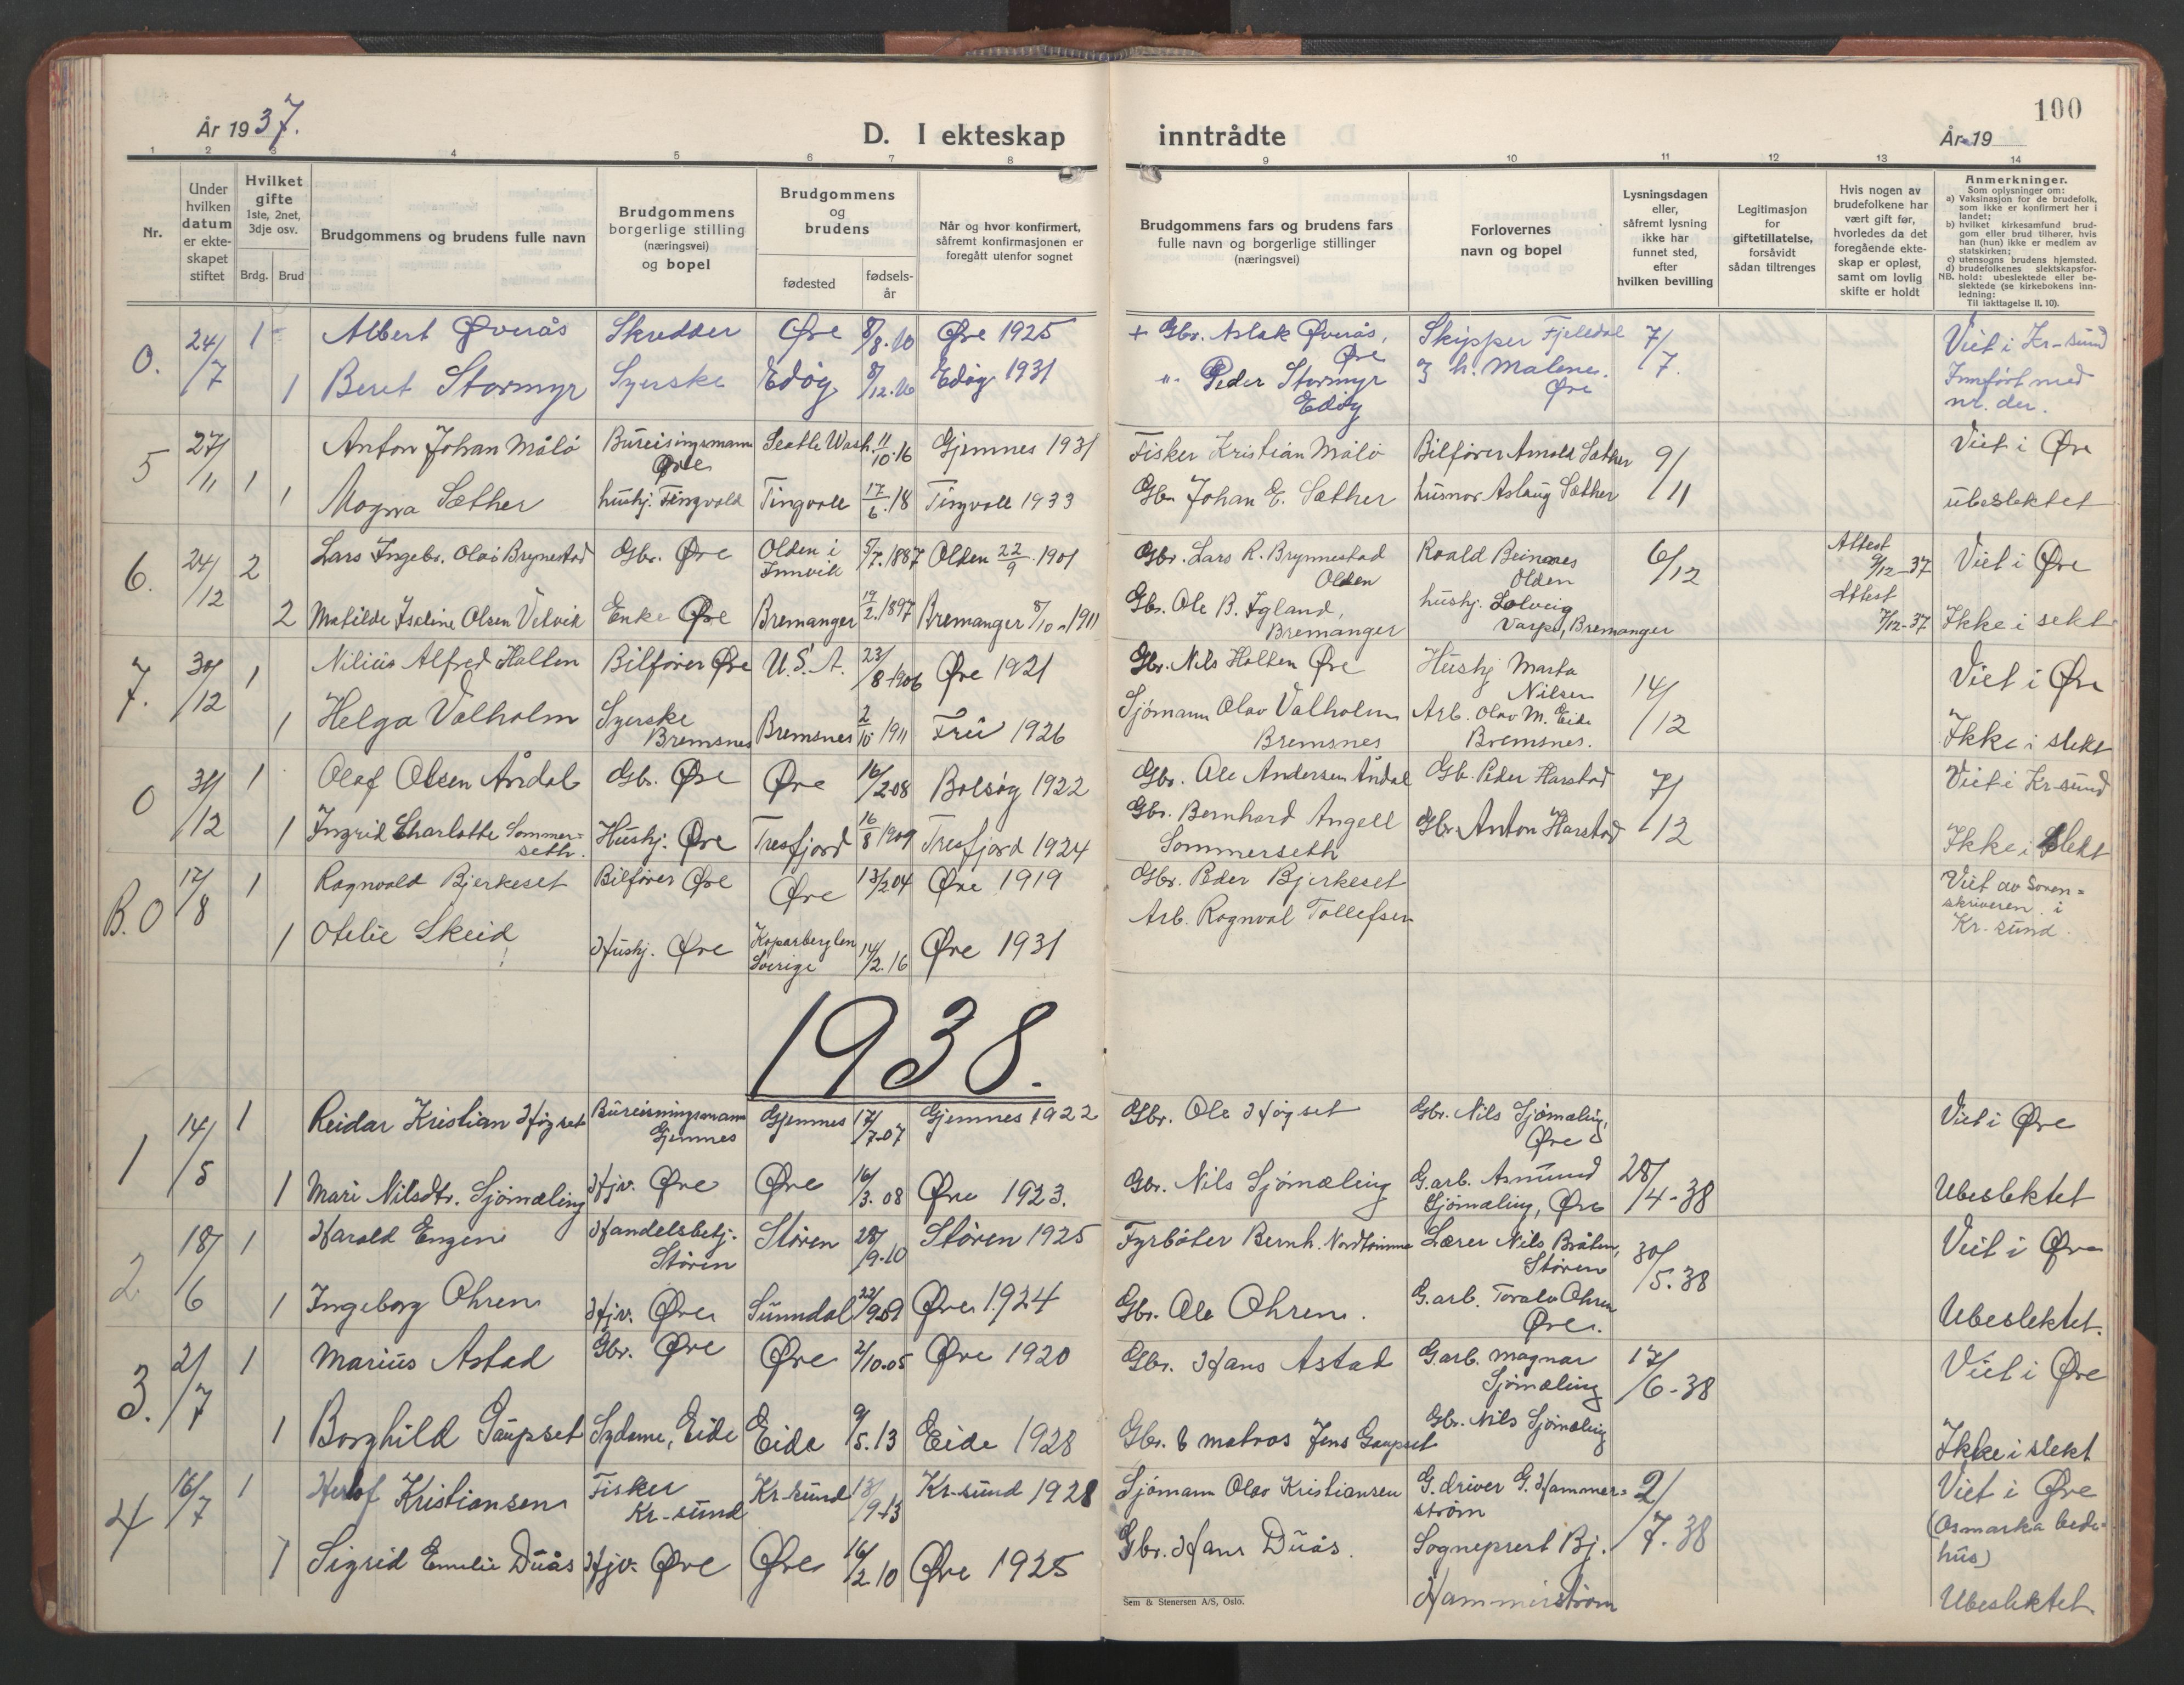 År 1937.
D. I ekteskap inntrådte
100
År 19
1 2 3 4 5 6 7 8 9 10 11 12 13 14
Nr.
Under hvilken datum er ekteskapet stiftet
Hvilket gifte 1ste, 2net, 3dje osv.
Brdg. Brud
Brudgommens og brudens fulle navn
Brudgommens borgerlige stilling (næringsvei) og bopel
Brudgommens og brudens
fødested
fødsels-år
Når og hvor konfirmert, såfremt konfirmasjonen er foregått utenfor sognet
Brudgommens fars og brudens fars fulle navn og borgerlige stillinger (næringsvei)
Forlovernes navn og bopel
Lysningsdagen eller, såfremt lysning ikke har funnet sted, efter hvilken bevilling
Legitimasjon for giftetillatelse, forsåvidt sådan tiltrenges
Hvis nogen av brudefolkene har vært gift før, hvorledes da det foregående ekteskap er opløst, samt om lovlig skifte er holdt
Anmerkninger.
Som oplysninger om:
a) Vaksinasjon for de brudefolk, som ikke er konfirmert her i landet;
b) hvilket kirkesamfund brudgom eller brud tilhører, hvis han (hun) ikke er medlem av statskirken;
c) utensogns brudens hjemsted.
d) brudefolkenes slektskapsforhold: ubeslektede eller beslektede (se kirkebokens innledning:
NB. Til iakttagelse II. 10).
0. 24/7 1 Albert Øverås Skredder Øre 8/8.10 Øre 1925 + Gbr. Aslak Øverås, Øre Skipper Fjeldal 7/7 Viet i Kr-sund
1 Beret Stormyr Syerske Edöy 8/12.10 Edöy 1931 " Peder Stormyr Edöy h. Malene. Øre Innført med nr. der.
5 27/11 1 Anton Johan Målö Bureisingsmann Øre Seatle Wash. 11/10.16 Gjemnes 1931 Fisker Kristian Målö Bilfører Arnold Sæther 9/11 Viet i Øre
1 Magna Sæther hushj. Tingvold Tingvoll 17/6.18 Tingvoll 1933 Gbr. Johan E. Sæther husmor Aslaug Sæther ubeslektet
6. 24/12 2 Lars Ingebr. Olai Brynestad Gbr. Øre Olden i Innvik 5/7.1887 Olden 22/9 1901 Gbr. Lars R. Brynnestad Olden Roald Beinnes Olden 6/12 Attest 9/12-37 Viet i Øre
2 Matilde Iseline Olsen Vetvik Enke Øre Bremanger 19/2.1897 Bremanger 8/10-1911 Gbr. Ole B. Igland, Bremanger hushj. Solveig Varpe, Bremanger Attest 7/12-37 Ikke i sekt
7. 30/12 1 Nilius Alfred Holten Bilfører Øre U.S.A. 23/8-1906 Øre 1921 Gbr. Nils Holten Øre Hushj Marta Nilsen 14/12 Viet i Øre
1 Helga Valholm Syerske Bremsnes Bremsnes 2/10 1911 Frei 1926 Sjömann Olav Valholm Bremsnes Arb. Olav M. Eide Bremsnes. Ikke i slekt
0 31/12 1 Olaf Olsen Årdal Gb. Øre Øre 16/2 08 Bolsöy 1922 Gbr. Ole Andersen Årdal Gb. Peder Harstad 7/12 Viet i Kr-sund
1 Ingrid Charlotte Sommer=seth. Hushj. Øre Tresfjord 16/8 1909 Tresfjord 1924 Gbr. Bernhard Angell Sommerseth Gbr. Anton Harstad Ikke i slekt
B. 0 12/8 1 Ragnvald Bjerkeset Bilfører Øre Øre 13/2 04 Øre 1919 Gbr. Peder Bjerkeset Viet av Soren=skriveren i Kr-sund.
1 Otelie Skeid Hushj. Øre Koparberg len Sverige 14/2.16 Øre 1931 Arb. Ragnval Tollefsen
1938.
1 14/5 1 Reidar Kristian Högset Bureisningsmann Gjemnes Gjemnes 17/7-07 Gjemnes 1922 Gbr. Ole Högset Gbr. Nils Sjömæling, Øre 28/4-38 Viet i Øre
1 Mari Nilsdtr. Sjömæling Hjv. Øre Øre 16/3.08 Øre 1923. Gbr. Nils Sjömæling G.arb. Asmund Sjömæling, Øre Ubeslektet
2 18/6 1 Harald Engen Handelsbetj. Stören Stören 28/9-10 Stören 1925 Fyrböter Bernh. Nordtömme Lærer Nils Bråten, Stören 30/5.38 Viet i Øre
1 Ingeborg Ohren Hjv. Øre Sunndal 22/9 09 Øre 1924 Gbr. Ole Ohren. G.arb. Toralv Ohren Øre. Ubeslektet.
3. 2/7 1 Marius Astad Gbr. Øre Øre 2/10.05 Øre 1920 Gbr. Hans Astad G.arb. Magnar Sjömæling 17/6-38 Viet i Øre
1 Borghild Gaupset Sydame, Eide Eide 9/5.13 Eide 1928 Gbr. & matros Jens Gaupset Gbr. Nils Sjömæling Ikke i slekt
4 16/7 1 Herlof Kristiansen Fisker Kr-sund Kr-sund 18/9-13 Kr-sund 1928 Sjömann Olav Kristiansen G.driver G. Hammer=ström 2/7.38 Viet i Øre (Osmarka bede=hus)
1 Sigrid Emelie Duås Hjv. Øre Øre 16/2 10 Øre 1925 Gbr. Hans Duås. Sogneprest Bj. Hammerström Ubeslektet
Sem & Stenersen A/S, Oslo.